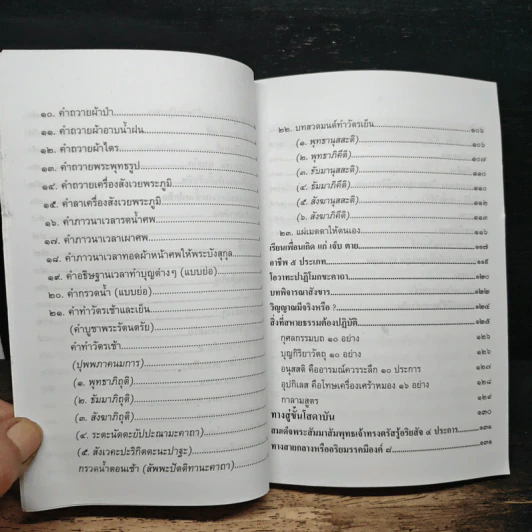 ๑๐. คำถวายผ้าป่า
๑๑. คำถวายผ้าอาบน้ำฝน
๑๒. คำถวายผ้าไตร
๑๓. คำถวายพระพุทธรูป
๑๔. คำถวายเครื่องสังเวยพระภูมิ
๑๕. คำลาเครื่องสังเวยพระภูมิ
๑๖. คำภาวนาเวลารดน้ำศพ
๑๗. คำภาวนาเวลาเผาศพ
๑๘. คำภาวนาเวลาทอดผ้าหน้าศพให้พระบังสุกุล
๑๙. คำอธิษฐานเวลาทำบุญต่างๆ (แบบย่อ)
๒๐. คำกรวดน้ำ (แบบย่อ)
๒๑. คำทำวัตรเช้าและเย็น
(คำบูชาพระรัตนตรัย)
คำทำวัตรเช้า
(ปุพพภาคนมการ)
(๑. พุทธาภิถุติ)
(๒. ธัมมาภิถุติ)
(๓. สังฆาภิถุติ)
(๔. ระตะนัตตะยัปปะณามะคาถา)
(๕. สังเวคะปะริกิตตะนะปาฐะ)
กรวดน้ำตอนเช้า (สัพพะปัตติทานะคาถา)
๒๒. บทสวดมนต์ทำวัตรเย็น ๑๐๖
(๑. พุทธานุสสะติ) ๑๐๖
(๒. พุทธาภิคีติ) ๑๐๗
(๓. ธัมมานุสสะติ) ๑๑๐
(๔. ธัมมาภิคีติ) ๑๑๐
(๕. สังฆานุสสะติ) ๑๑๒
(๖. สังฆาภิคีติ) ๑๑๓
๒๓. แผ่เมตตาให้ตนเอง ๑๑๖
เรียนเพื่อนเกิด แก่ เจ็บ ตาย ๑๑๗
อาชีพ ๕ ประเภท ๑๑๙
โอวาทะปาฏิโมกขะคาถา ๑๒๐
บทพิจารณาสังขาร ๑๒๒
วิญญาณมีจริงหรือ ? ๑๒๔
สิ่งที่สหายธรรมต้องปฏิบัติ ๑๒๕
กุศลกรรมบถ ๑๐ อย่าง ๑๒๖
บุญกิริยาวัตถุ ๑๐ อย่าง ๑๒๖
อนุสสติ คืออารมณ์ควรระลึก ๑๐ ประการ ๑๒๗
อุปกิเลส คือโทษเครื่องเศร้าหมอง ๑๖ อย่าง ๑๒๘
กาลามสูตร ๑๒๙
ทางสู่ชั้นโสดาบัน ๑๓๐
สมเด็จพระสัมมาสัมพุทธเจ้าทรงตรัสรู้อริยสัจ ๔ ประการ ๑๓๑
ทางสายกลางหรืออริยมรรคมีองค์ ๘ ๑๓๑